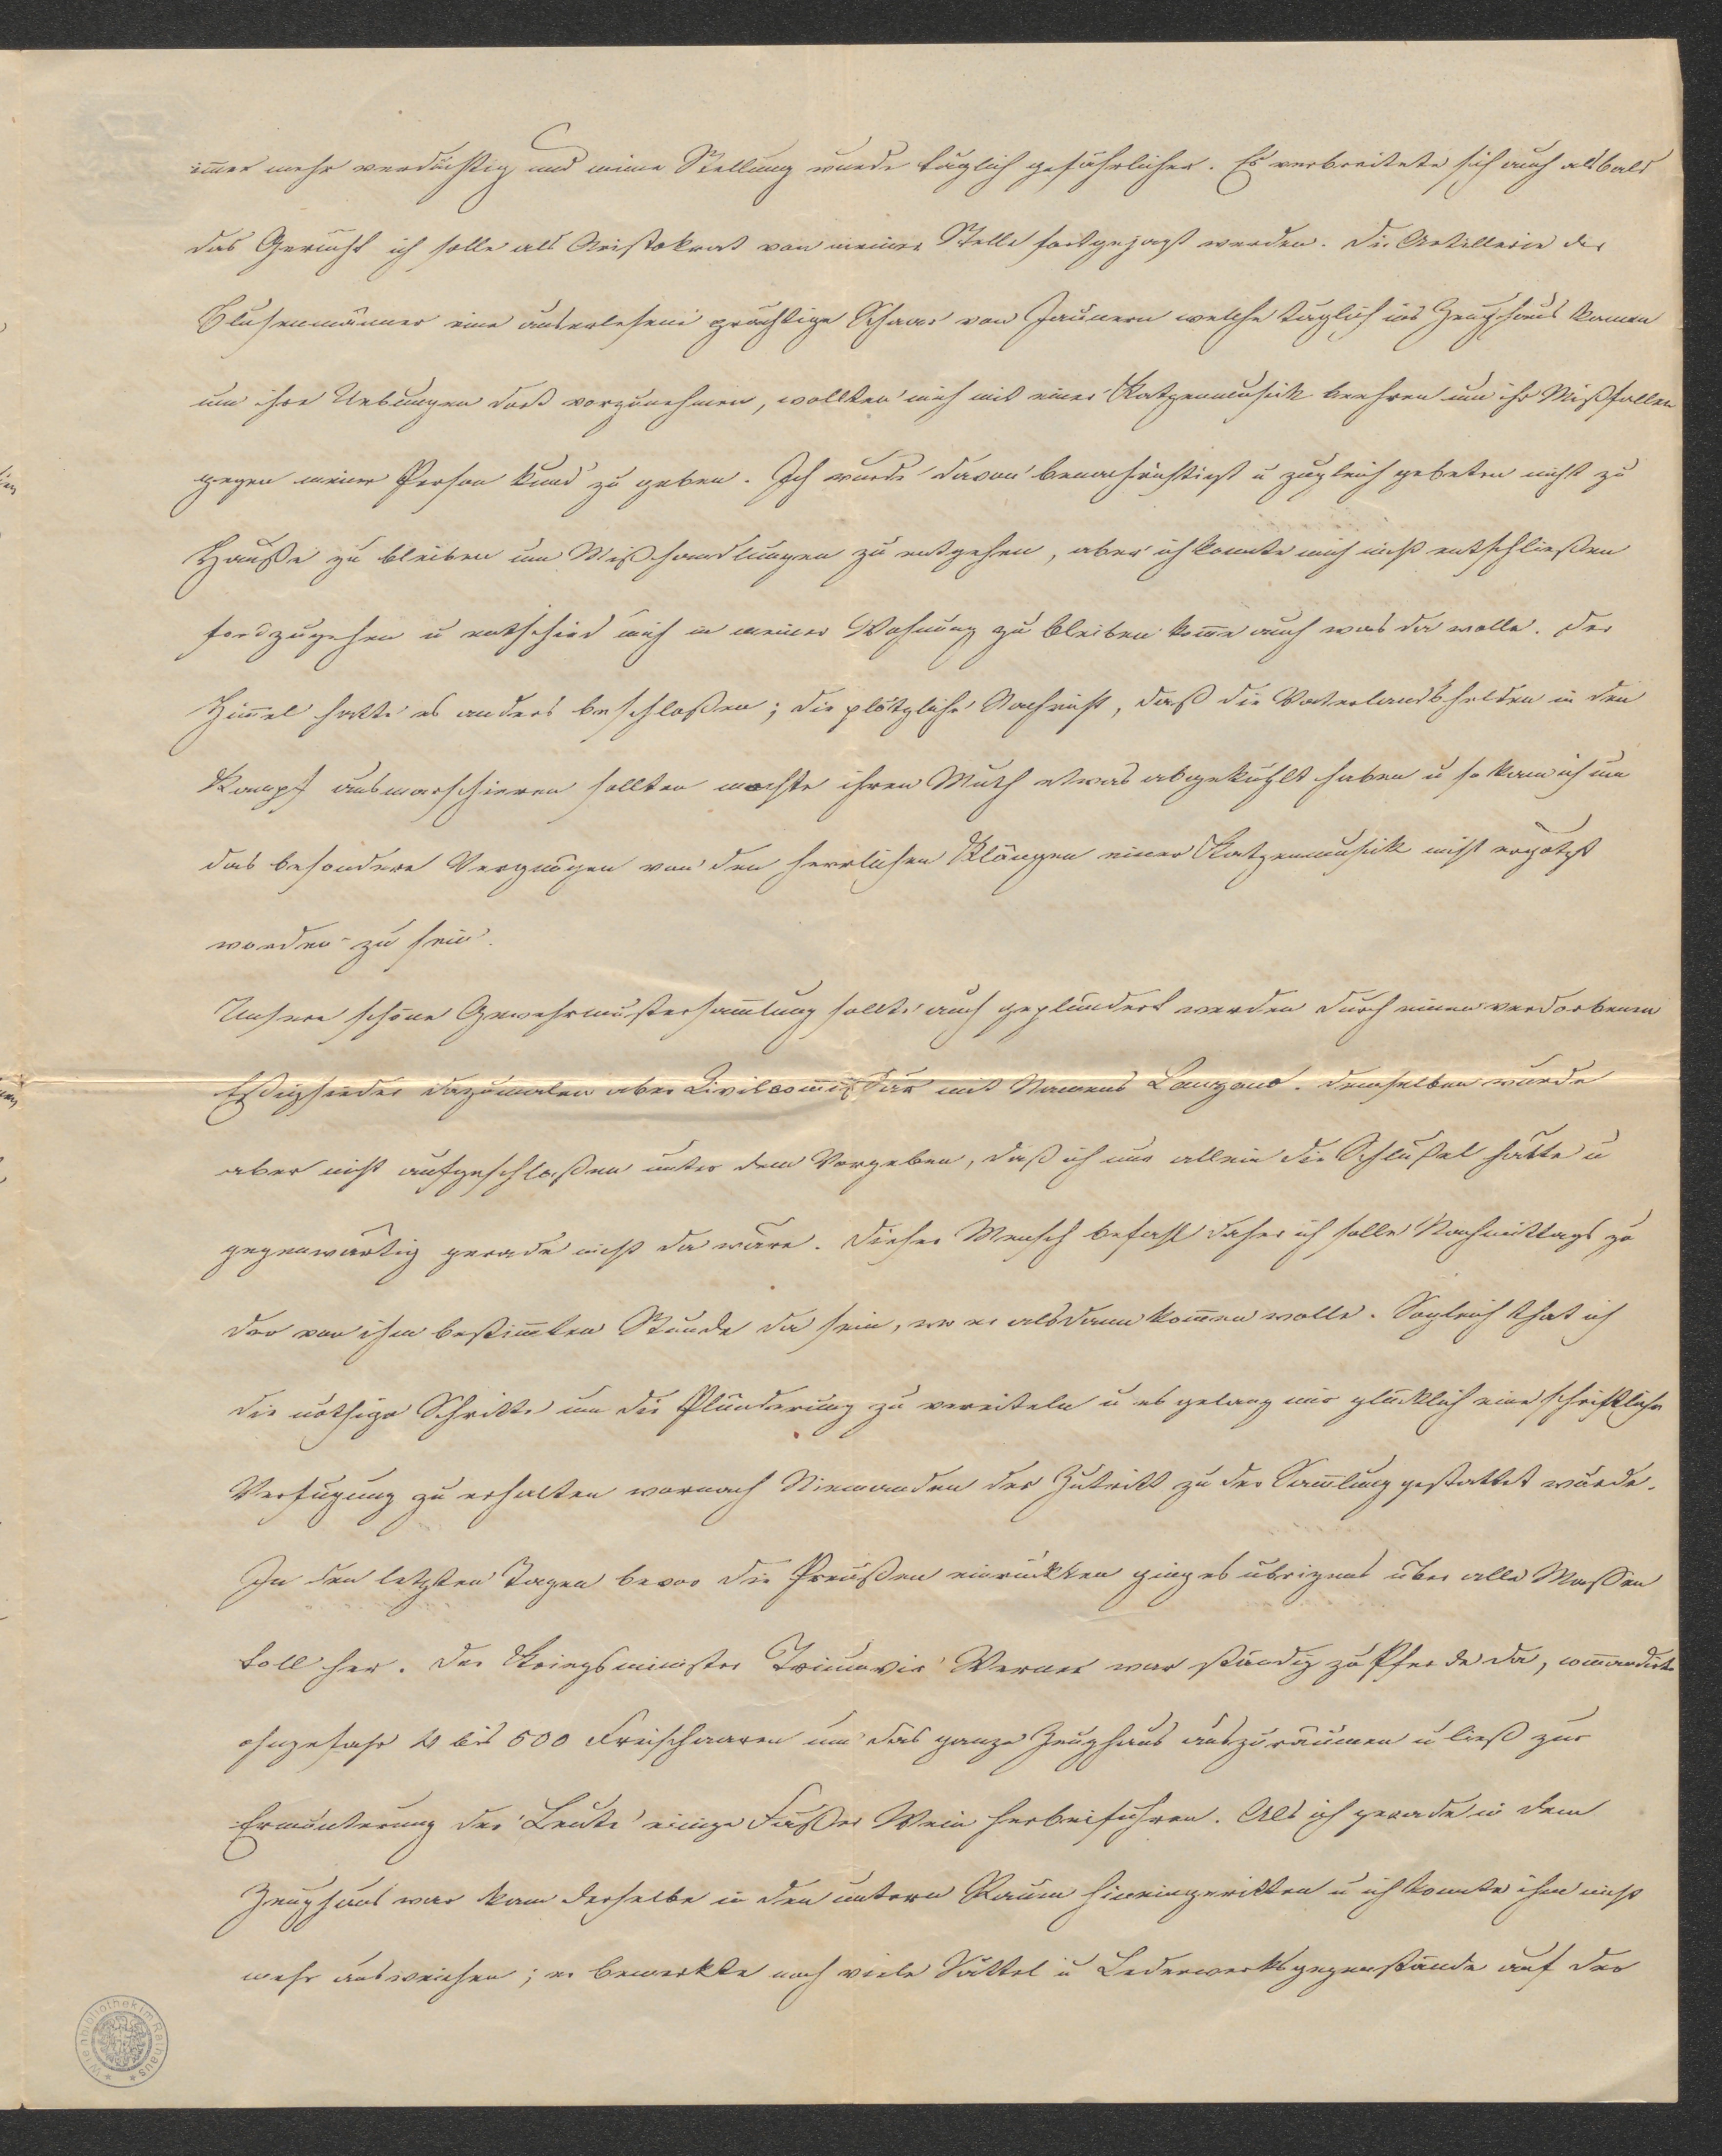 im̄er mehr verdächtig und meine Stellung wurde täglich gefährlicher. Es verbreitete sich auch alsbald
das Gerücht ich solle als Aristokrat von meiner Stelle fortgejagt werden. Die Artillerie der
Blusenmänner eine auserlesene prächtige Schaar von Gaunern welche täglich ins Zeughaus kamen
um ihre Uebungen dort vorzunehmen, wollten mich mit einer Katzenmusick beehren um ihr Mißfallen
gegen meine Person kund zu geben. Ich wurde davon benachrichtigt u zugleich gebeten nicht zu
Hauße zu bleiben um Mißhandlungen zu entgehen, aber ich konnte mich nicht entschließen
fordzugehen u entschied mich in meiner Wohnung zu bleiben kom̄e auch was da wolle. Der
Him̄el hatte es anders beschloßen; die plötzliche Nachricht, daß die Vaterlandshelden in den
Kampf ausmarschieren sollten mochte ihren Muth etwas abgekühlt haben u so kam ich um
das besondere Vergnügen von den herrlichen Klängen einer Katzenmusick nicht ergötzt
worden zu sein.
Unsere schöne Gewehrmustersam̄lung sollte auch geplündert werden durch einen verdorbenen
Eßigsieder dazumalen aber Civilcom̄issär mit Namens Lanzano. Demselben wurde
aber nicht aufgeschloßen unter dem Vorgeben, daß ich nur allein die Schlüßel hätte u
gegenwärtig gerade nicht da wäre. Dieser Mensch befahl daher ich solle Nachmittags zu
der von ihm bestim̄ten Stunde da sein, wo er alsdann kom̄en wolle. Sogleich that ich
die nöthige Schritte um die Plünderung zu vereiteln u es gelang mir glücklich eine schriftliche
Verfügung zu erhalten wornach Niemanden der Zutritt zu der Sam̄lung gestattet würde.
In den letzten Tagen bevor die Preußen einrückten ging es übrigens über alle Maßen
toll her. Der Kriegsminister Triumvir Werner war ständig zu Pferde da, com̄andirte
ohngefähr 4 bis 500 Freischaaren um das ganze Zeughaus auszuräumen u ließ zur
Ermunterung der Leute einige Fäßer Wein herbeiführen. Als ich gerade in dem
Zeughaus war kam derselbe in den untern Raum hineingeritten u ich konnte ihm nicht
mehr ausweichen; er bemerkte noch viele Sättel u Lederwerksgegenstände auf der
Wienbibliothek im Rathaus